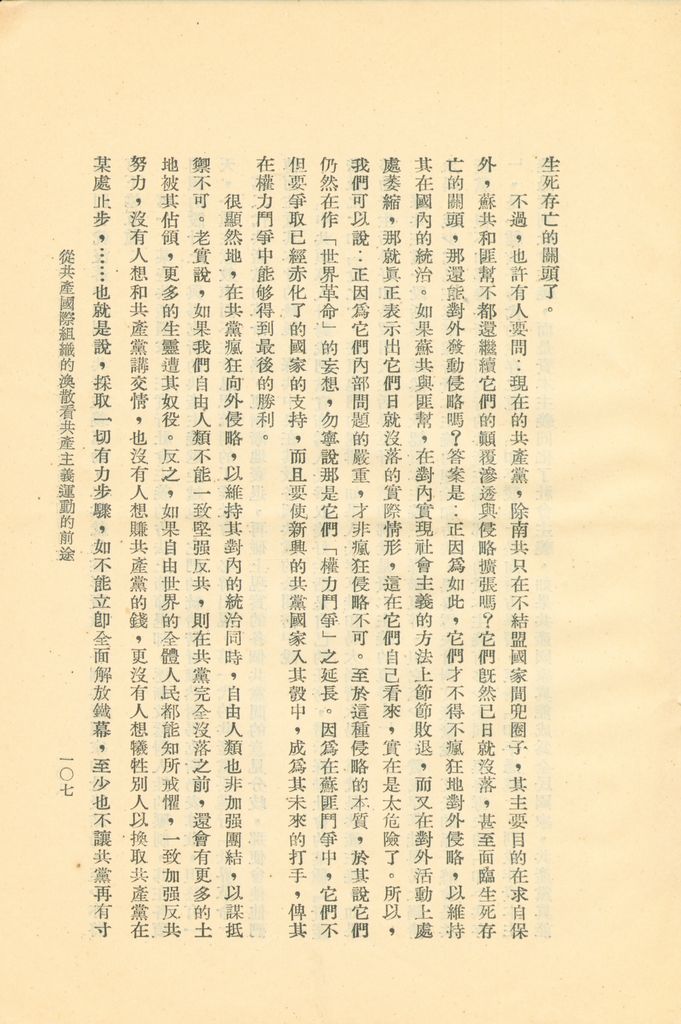 生死存亡的關頭了。
不過，也許有人要問：現在的共產黨，除南共只在不結盟國家間兜圈子，其主要目的在求自保
外，蘇共和匪幫不都還繼續它們的顛覆滲透與侵略擴張嗎？它們既然已日就沒落，甚至面臨生死存
亡的關頭，那還能對外發動侵略嗎？答案是：正因爲如此，它們才不得不瘋狂地對外侵略，以維持
其在國內的統治。如果蘇共與匪幫，在對內實現社會主義的方法上節節敗退，而又在對外活動上處
處萎縮，那就眞正表示出它們日就沒落的實際情形，這在它們自己看來，實在是太危險了。所以，
我們可以說：正因爲它們內部問題的嚴重，才非瘋狂侵略不可。至於這種侵略的本質，於其說它們
仍然在作「世界革命」的妄想，勿寧說那是它們「權力鬥爭」之延長。因爲在蘇匪鬥爭中，它們不
但要爭取已經赤化了的國家的支持，而且要使新興的共黨國家入其彀中，成爲其未來的打手，俾其
在權力鬥爭中能够得到最後的勝利。
很顯然地，在共黨瘋狂向外侵略，以維持其對內的統治同時，自由人類也非加强團結，以謀抵
禦不可。老實說，如果我們自由人類不能一致堅强反共，則在共黨完全沒落之前，還會有更多的土
地被其佔領，更多的生靈遭其奴役。反之，如果自由世界的全體人民都能知所戒懼，一致加强反共
努力，沒有人想和共產黨講交情，也沒有人想賺共產黨的錢，更沒有人想犧牲別人以換取共產黨在
某處止步，……也就是說，採取一切有力步驟，如不能立卽全面解放鐵幕，至少也不讓共黨再有寸
從共產國際組織的渙散看共產主義運動的前途
一〇七